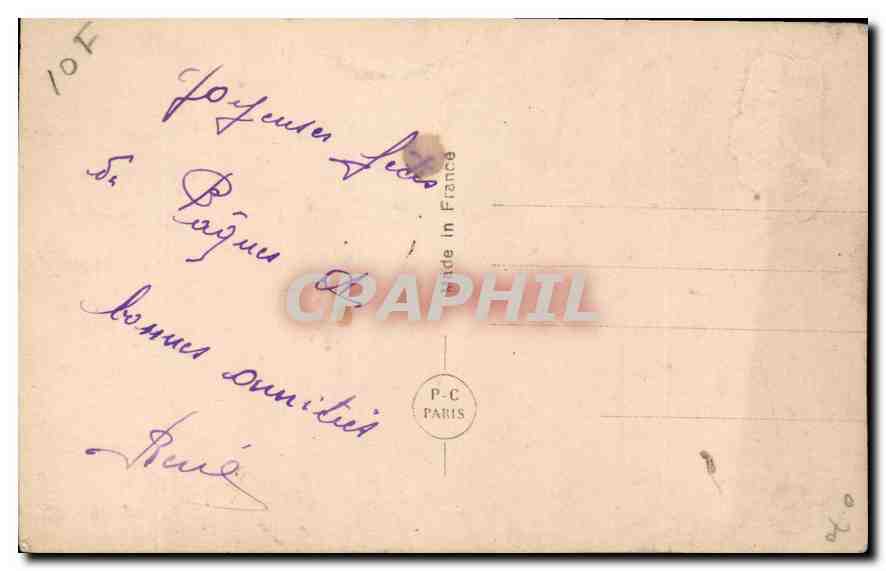 10F
Joyeuses fêtes
de Pâques et
bonnes amitiés
René
Made in France
CPAPHIL
P-C
PARIS